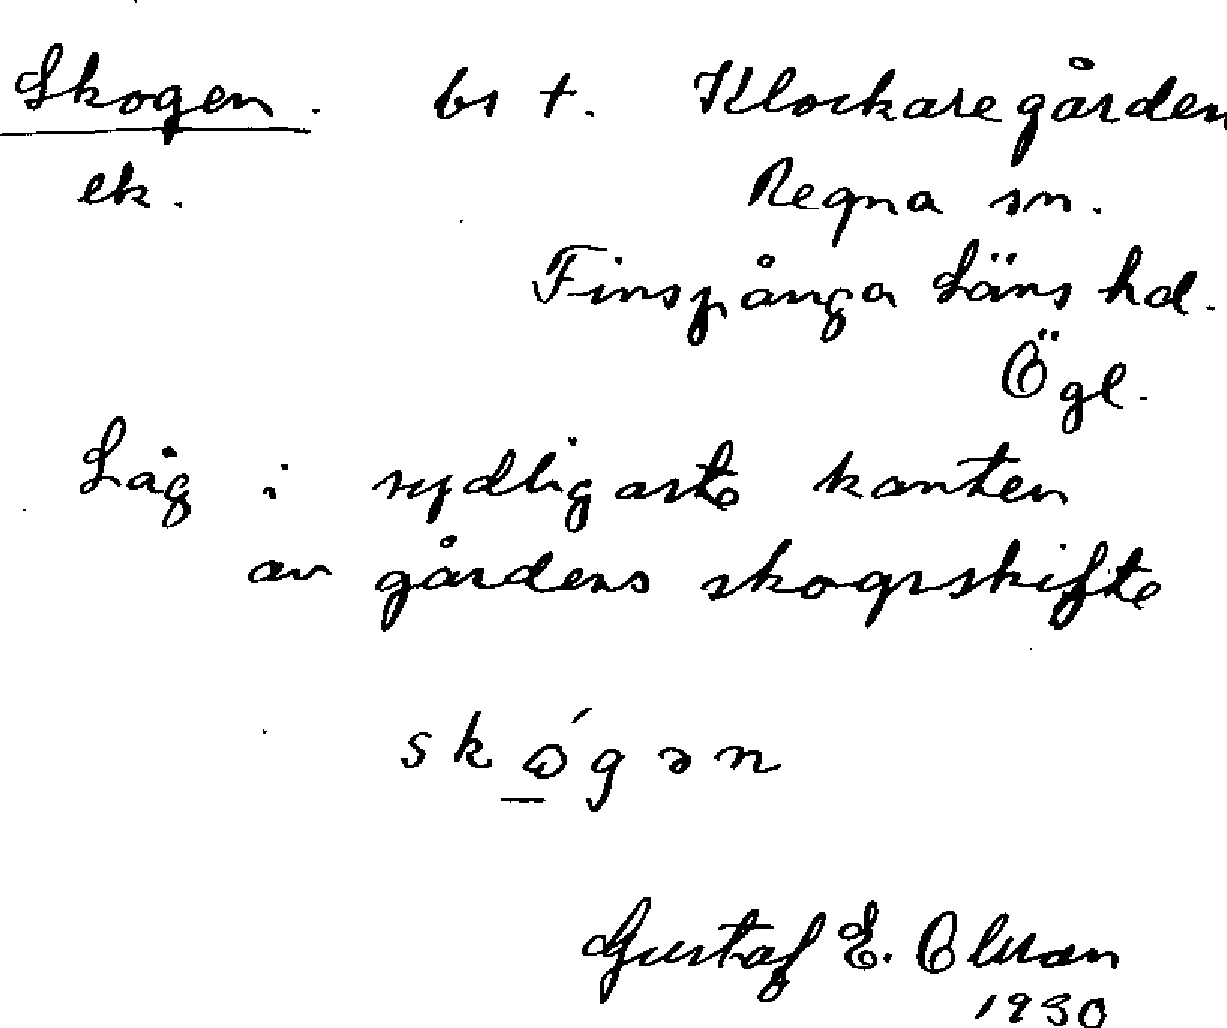 Skogen. bs t. Klockaregården
ek. Regna sn.
Finspånga Läns hd.
Ögl.
Låg i sydligaste kanten
av gårdens skogsskifte
skógən
Gustaf E. Olsson
1930